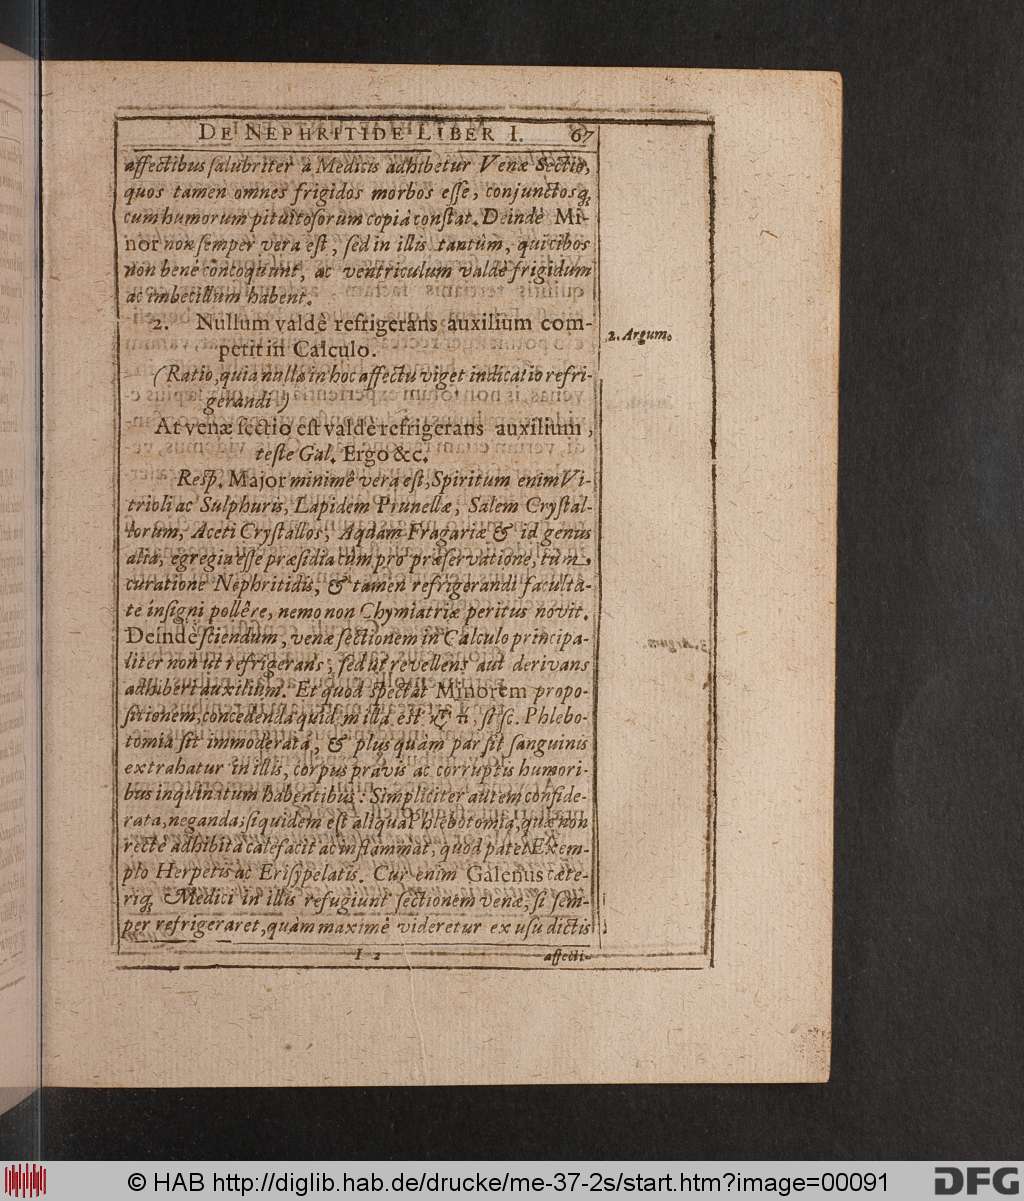 DE NEPHRITIDE LIBER I. 67
affectibus ſalubriter à Medicis adhibetur Venæ Sectio,
quos tamen omnes frigidos morbos eſſe, conjunctosq;
cum humorum pituitoſorum copiâ conſtat. Deindè Mi-
nor non ſemper vera eſt, ſed in illis tantûm, qui cibos
non benè concoquunt, ac ventriculum valdè frigidum
ac imbecillum habent.
2. Nullum valdè refrigerans auxilium com-
petit in Calculo.
2. Argum.
(Ratio, quia nulla in hoc affectu viget indicatio refri-
gerandi)
At venæ ſectio eſt valdè refrigerans auxilium,
teſte Gal. Ergo &c.
Reſp. Major minimê vera eſt, Spiritum enim Vi-
trioli ac Sulphuris, Lapidem Prunellæ, Salem Cryſtal-
lorum, Aceti Cryſtallos, Aquam Fragariæ & id genus
alia, egregia eſſe præſidia tùm pro præſervatione, tùm
curatione Nephritidis, & tamen refrigerandi faculta-
te inſigni pollêre, nemo non Chymiatriæ peritus novit.
Deindè ſciendum, venæ ſectionem in Calculo principa-
liter non ut refrigerans, ſed ut revellens aut derivans
adhiberi auxilium. Et quod ſpectat Minorem propo-
ſitionem, concedenda quidem illa eſt ſi ſc. Phlebo-
tomia ſit immoderata, & plus quàm par ſit ſanguinis
extrahatur in illis, corpus pravis ac corruptis humori-
bus inquinatum habentibus: Simpliciter autem conſide-
rata, neganda; ſiquidem eſt aliqua Phlebotomia, quæ non
rectè adhibita calefacit ac inflammat, quod patet Exem-
plo Herpetis ac Eriſypelatis. Cur enim Galenus cæte-
riq; Medici in illis refugiunt ſectionem venæ, ſi ſem-
per refrigeraret, quàm maximè videretur ex uſu dictis
I 2 affecti-
© HAB http://diglib.hab.de/drucke/me-37-2s/start.htm?image=00091
DFG